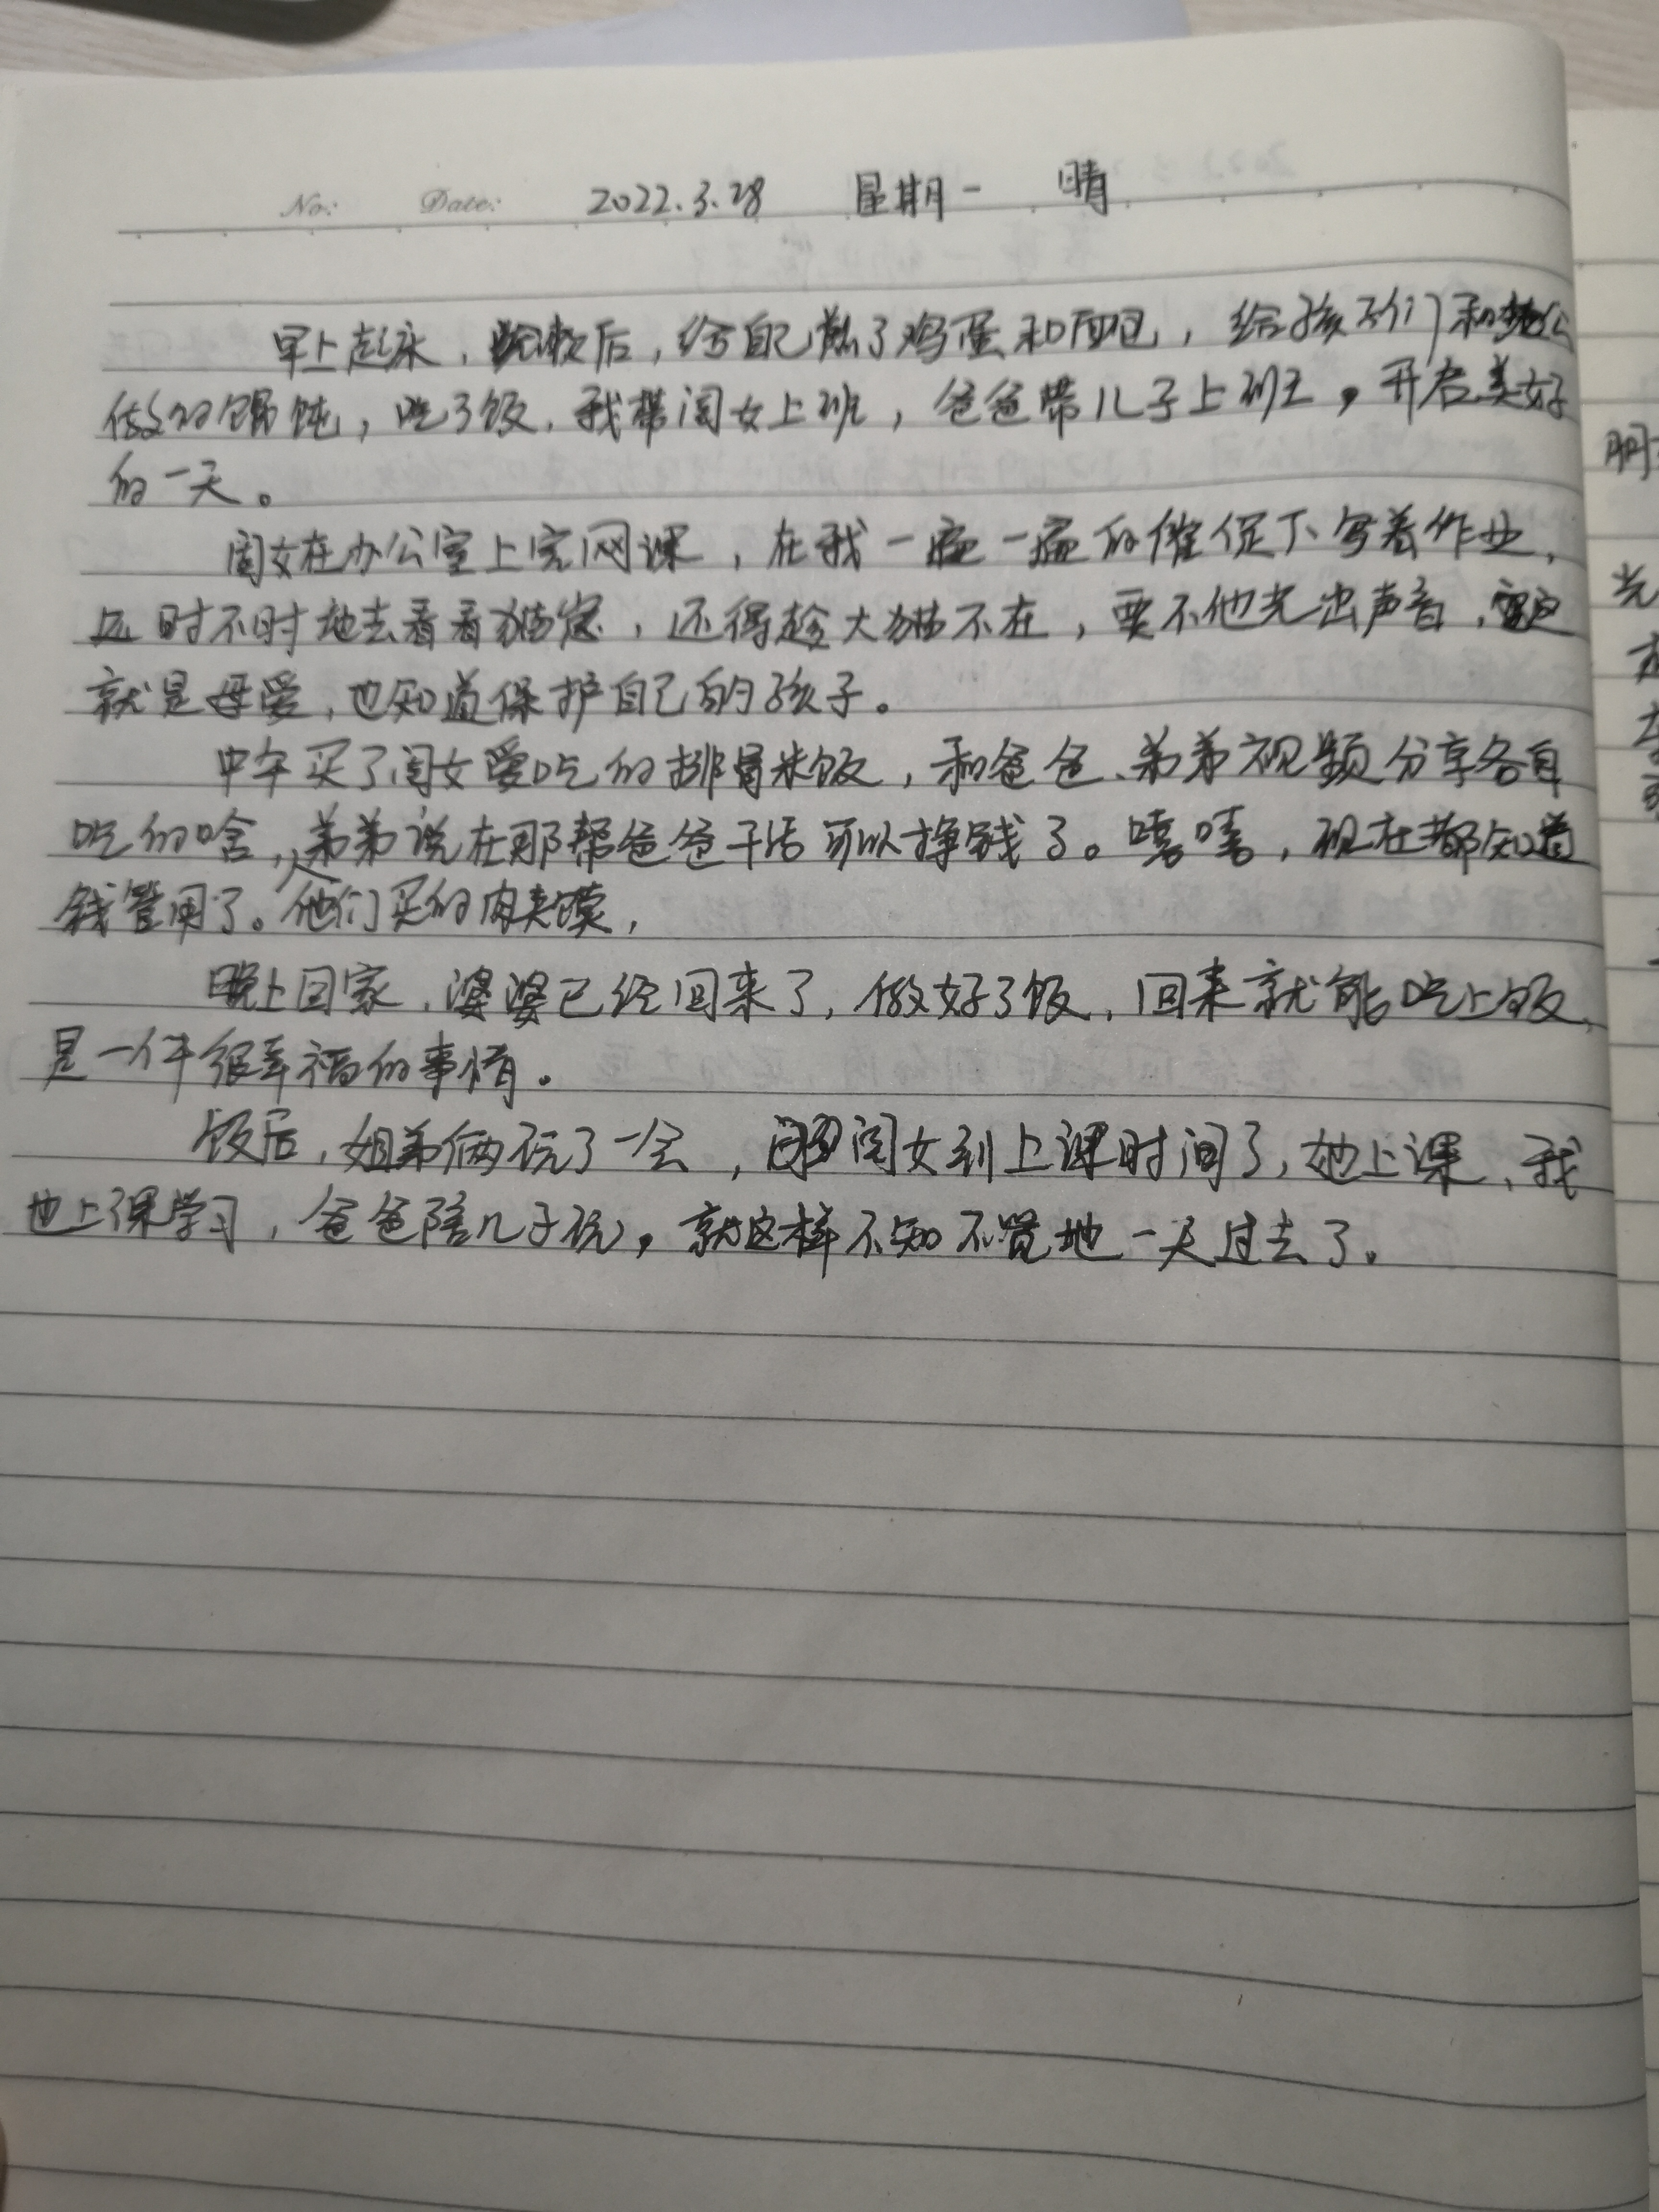 No: Date: 2022.3.28 星期一 晴
早上起床，洗漱后，给自己煎了鸡蛋和面包，给孩子们和
做的馄饨，吃了饭，我带闺女上班，爸爸带儿子上班，开启美好
的一天。
闺女在办公室上完网课，在我一遍一遍的催促下写着作业，
时不时地去看看猫窝，还得趁大猫不在，要不他光出声音，这
就是母爱，也知道保护自己的孩子。
中午买了闺女爱吃的排骨米饭，和爸爸、弟弟视频分享各自
吃的啥，弟弟说在那帮爸爸干活可以挣钱了。嘻嘻，现在都知道
钱管用了。他们买的肉夹馍，
晚上回家，婆婆已经回来了，做好了饭，回来就能吃上饭，
是一件很幸福的事情。
饭后，姐弟俩玩了一会，闺女到上课时间了，她上课，我
也上课学习，爸爸陪儿子玩，就这样不知不觉地一天过去了。